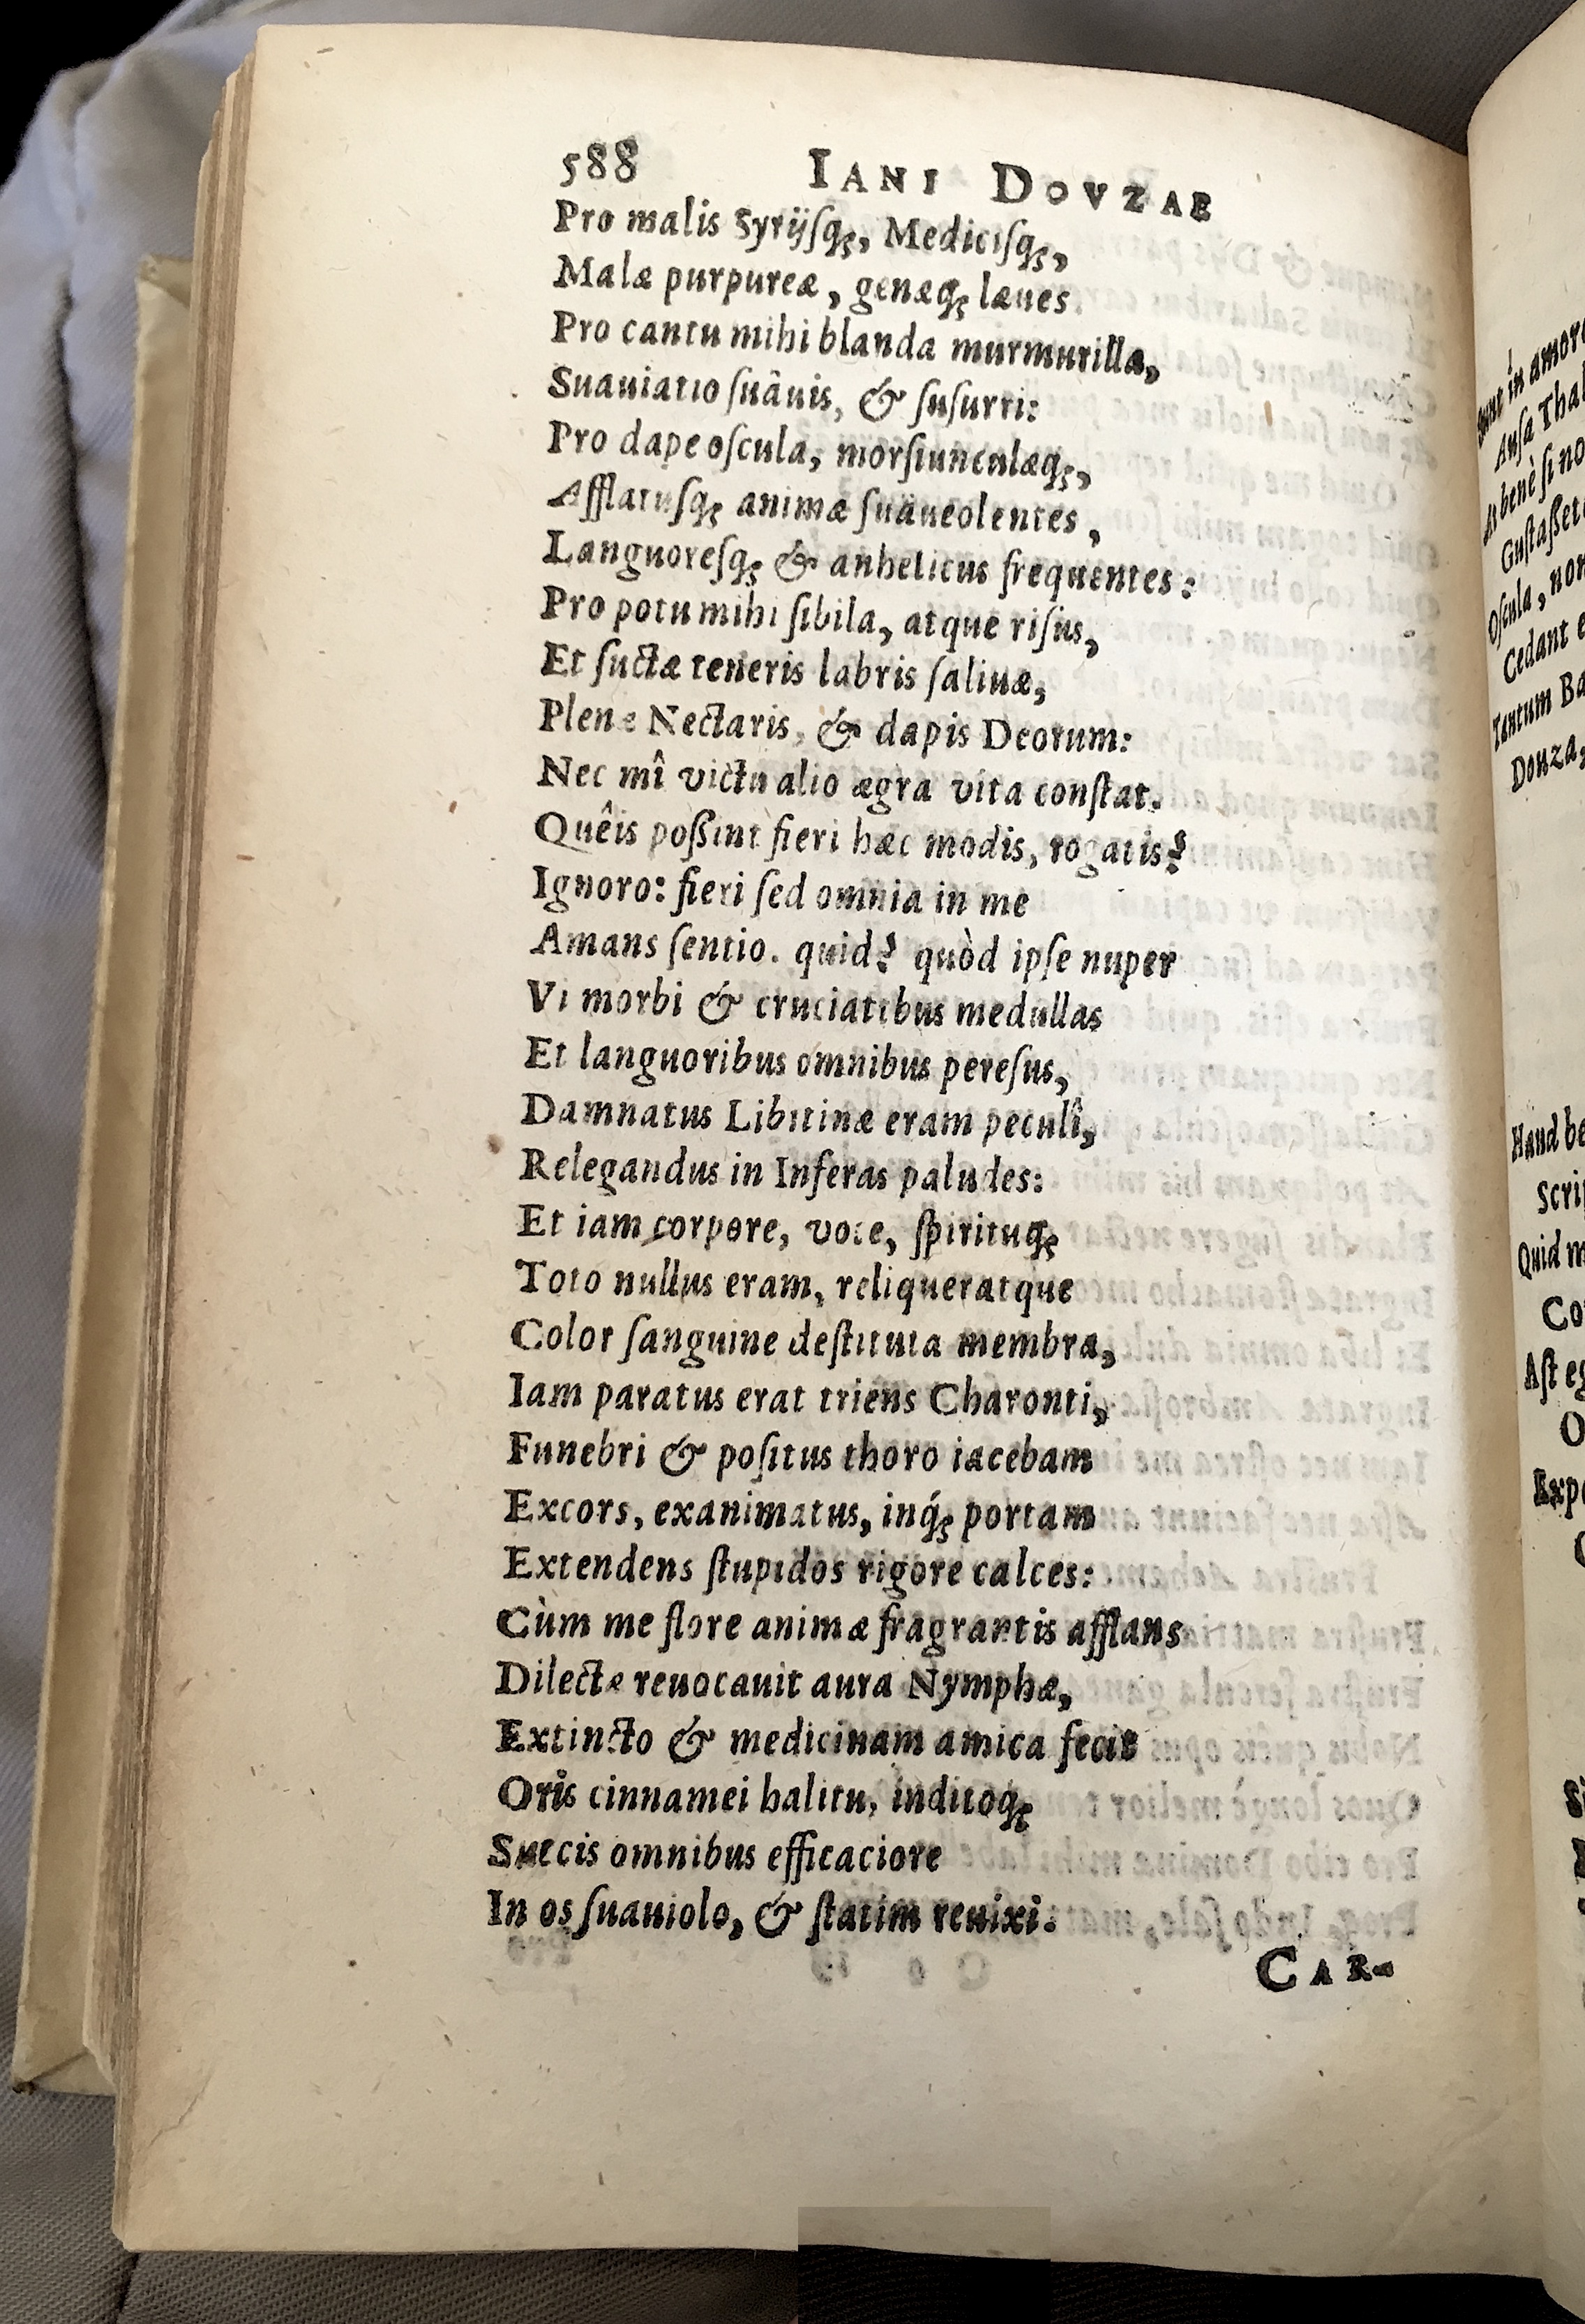 588 IANI DOVZAE
Pro malis Syrijſq́;, Mediciſq́;,
Malæ purpureæ, genæq́; læues.
Pro cantu mihi blanda murmurilla,
Suauiatio ſuâuis, & ſuſurri:
Pro dape oſcula, morſiunculæq́;,
Afflatuſq́; animæ ſuaueolentes,
Languoreſq́; & anhelitus frequentes:
Pro potu mihi ſibila, atque riſus,
Et ſuctæ teneris labris ſaliuæ,
Plenæ Nectaris, & dapis Deorum:
Nec mî victu alio ægra vita conſtat.
Quêis poßint fieri hæc modis, rogatis?
Ignoro: fieri ſed omnia in me
Amans ſentio. quid? quòd ipſe nuper
Vi morbi & cruciatibus medullas
Et languoribus omnibus pereſus,
Damnatus Libitinæ eram peculî,
Relegandus in Inferas paludes:
Et iam corpore, voce, ſpirituq́;
Toto nullus eram, reliqueratque
Color ſanguine deſtituta membra,
Iam paratus erat triens Charonti,
Funebri & poſitus thoro iacebam
Excors, exanimatus, inq́; portam
Extendens ſtupidos rigore calces:
Cùm me flore animæ fragrantis afflans
Dilectæ reuocauit aura Nymphæ,
Extincto & medicinam amica fecit
Oris cinnamei halitu, inditoq́;
Succis omnibus efficaciore
In os ſuauiolo, & ſtatim reuixi.
CAR-
ſunt in amore
Auſa Thal
At benè ſi no
Guſtaßet
Oſcula, non
Cedant e
Tantum Ba
Douza,
Haud be
Scri
Quid m
Co
Aſt eg
O
Exp